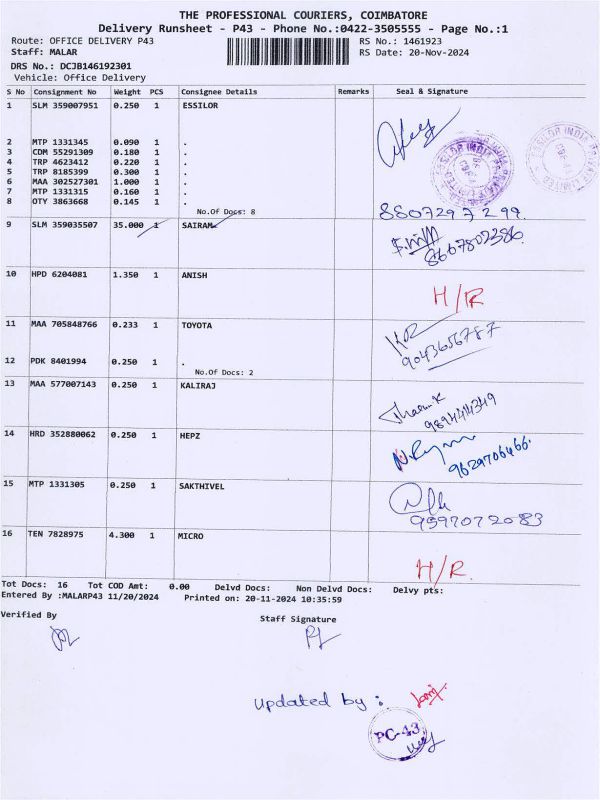 THE PROFESSIONAL COURIERS, COIMBATORE
Delivery Runsheet - P43 - Phone No.:0422-3505555 - Page No.:1
Route: OFFICE DELIVERY P43 RS No.: 1461923
Staff: MALAR RS Date: 20-Nov-2024
DRS No.: DCJB146192301
Vehicle: Office Delivery
S No Consignment No Weight PCS Consignee Details Remarks Seal & Signature
1 SLM 359007951 0.250 1 ESSILOR
2 MTP 1331345 0.090 1 .
3 CDM 55291309 0.180 1 .
4 TRP 4623412 0.220 1 .
5 TRP 8185399 0.300 1 .
6 MAA 302527301 1.000 1 .
7 MTP 1331315 0.160 1 .
8 OTY 3863668 0.145 1 .
No.Of Docs: 8
8807297299
9 SLM 359035507 35.000 1 SAIRAM
8667802386
10 HPD 6204081 1.350 1 ANISH
H/R
11 MAA 705848766 0.233 1 TOYOTA
9043656787
12 PDK 8401994 0.250 1 .
No.Of Docs: 2
13 MAA 577007143 0.250 1 KALIRAJ
9894414349
14 HRD 352880062 0.250 1 HEPZ
9629706466.
15 MTP 1331305 0.250 1 SAKTHIVEL
9597072083
16 TEN 7828975 4.300 1 MICRO
H/R.
Tot Docs: 16 Tot COD Amt: 0.00 Delvd Docs: Non Delvd Docs: Delvy pts:
Entered By :MALARP43 11/20/2024 Printed on: 20-11-2024 10:35:59
Verified By
Staff Signature
Updated by :
PC-43